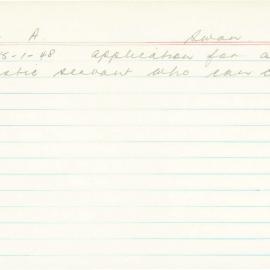 A. Swan
5-1-48 application for a
estic servant who can c